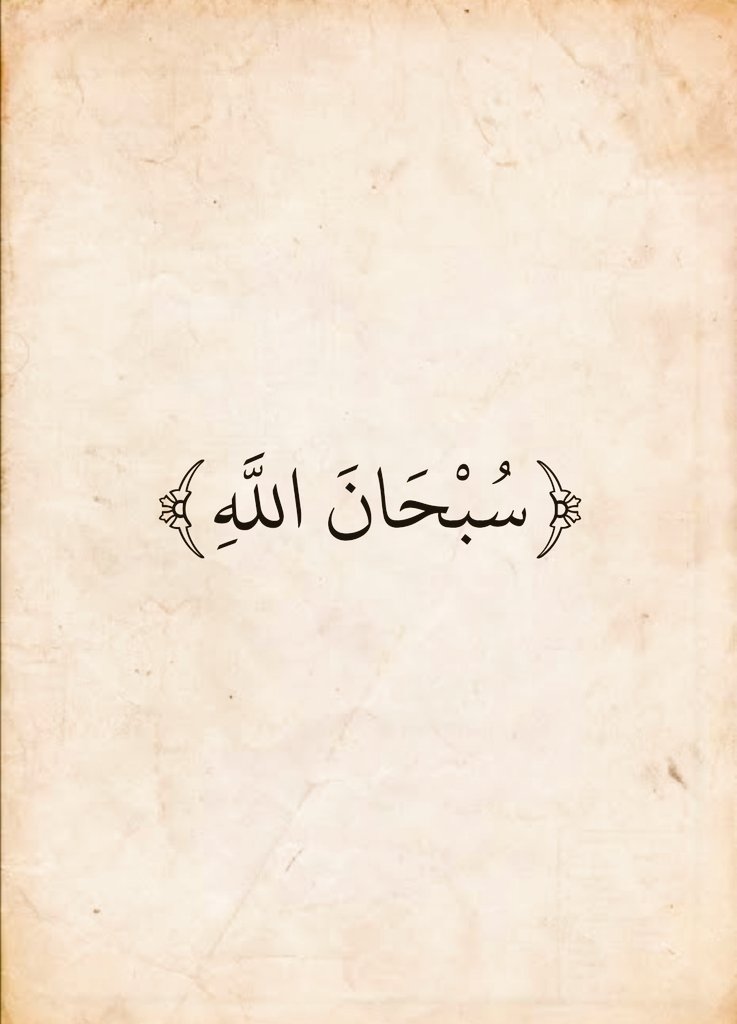 ﴿سُبْحَانَ اللَّهِ﴾